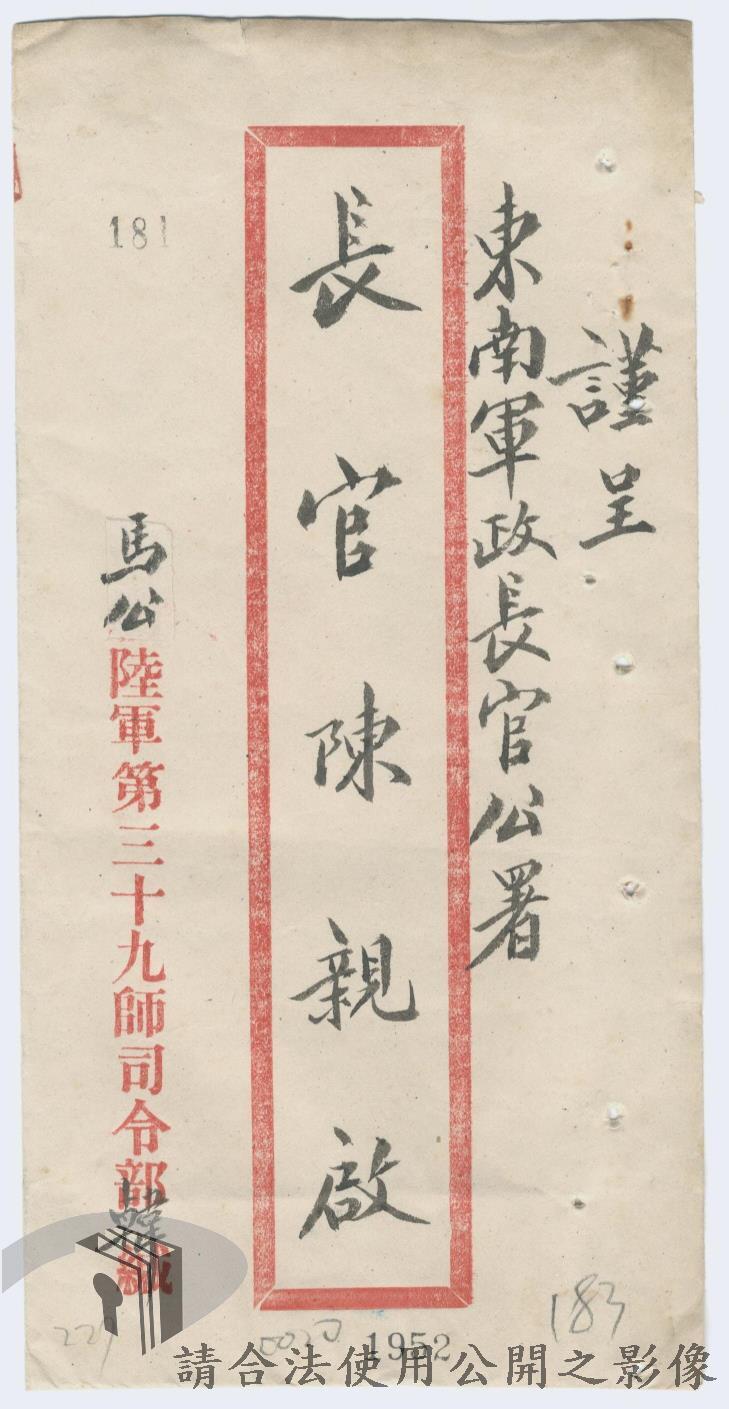 謹呈
東南軍政長官公署
長官陳親啟
181
馬公陸軍第三十九師司令部 緘
183
1952
請合法使用公開之影像